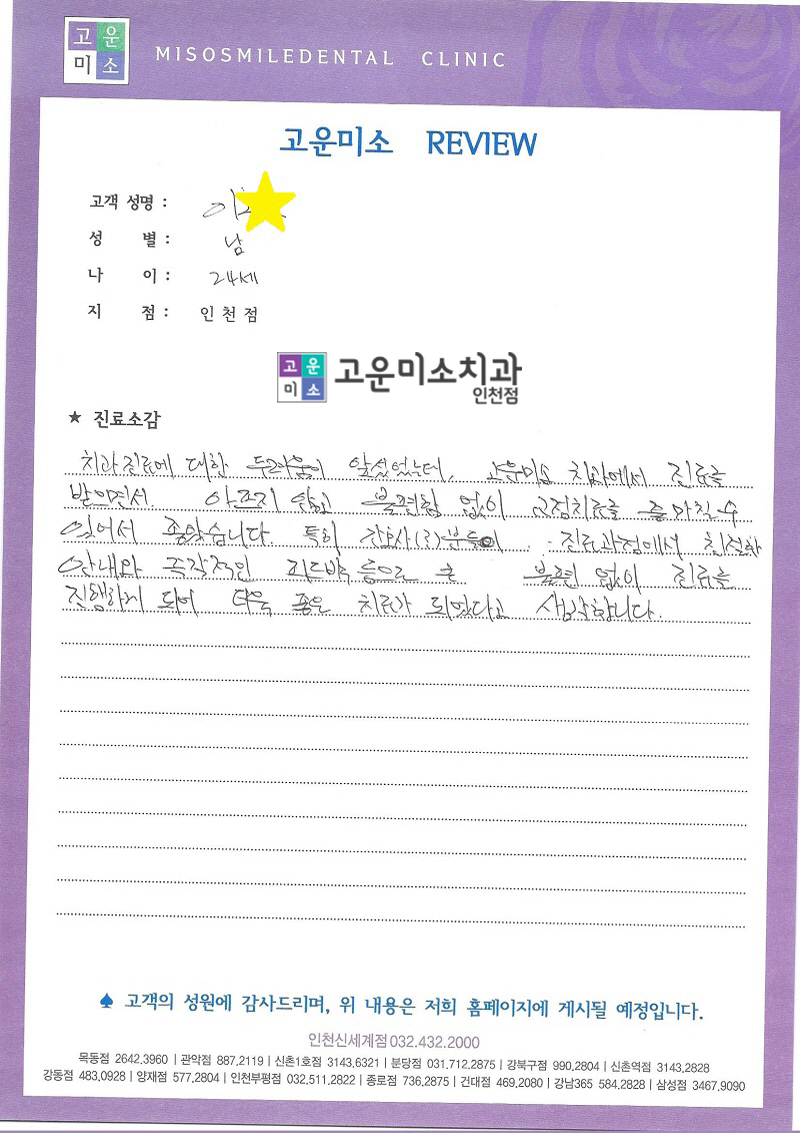 고운
미소
MISOSMILEDENTAL CLINIC
고운미소 REVIEW
고객 성명 : 이
성 별 : 남
나 이 : 24세
지 점 : 인천점
고운
미소
고운미소치과
인천점
★ 진료소감
치과진료에 대한 두려움이 앞섰었는데, 고운미소 치과에서 진료를
받으면서 아프지 않고 불편함 없이 교정치료를 잘 마칠 수
있어서 좋았습니다. 특히 간호사(?)분들이 진료과정에서 친절한
안내와 즉각적인 피드백 등으로 큰 불편 없이 진료를
진행하게 되어 더욱 좋은 치료가 되었다고 생각합니다.
♠ 고객의 성원에 감사드리며, 위 내용은 저희 홈페이지에 게시될 예정입니다.
인천신세계점 032.432.2000
목동점 2642.3960 | 관악점 887.2119 | 신촌1호점 3143.6321 | 분당점 031.712.2875 | 강북구점 990.2804 | 신촌역점 3143.2828
강동점 483.0928 | 양재점 577.2804 | 인천부평점 032.511.2822 | 종로점 736.2875 | 건대점 469.2080 | 강남365 584.2828 | 삼성점 3467.9090